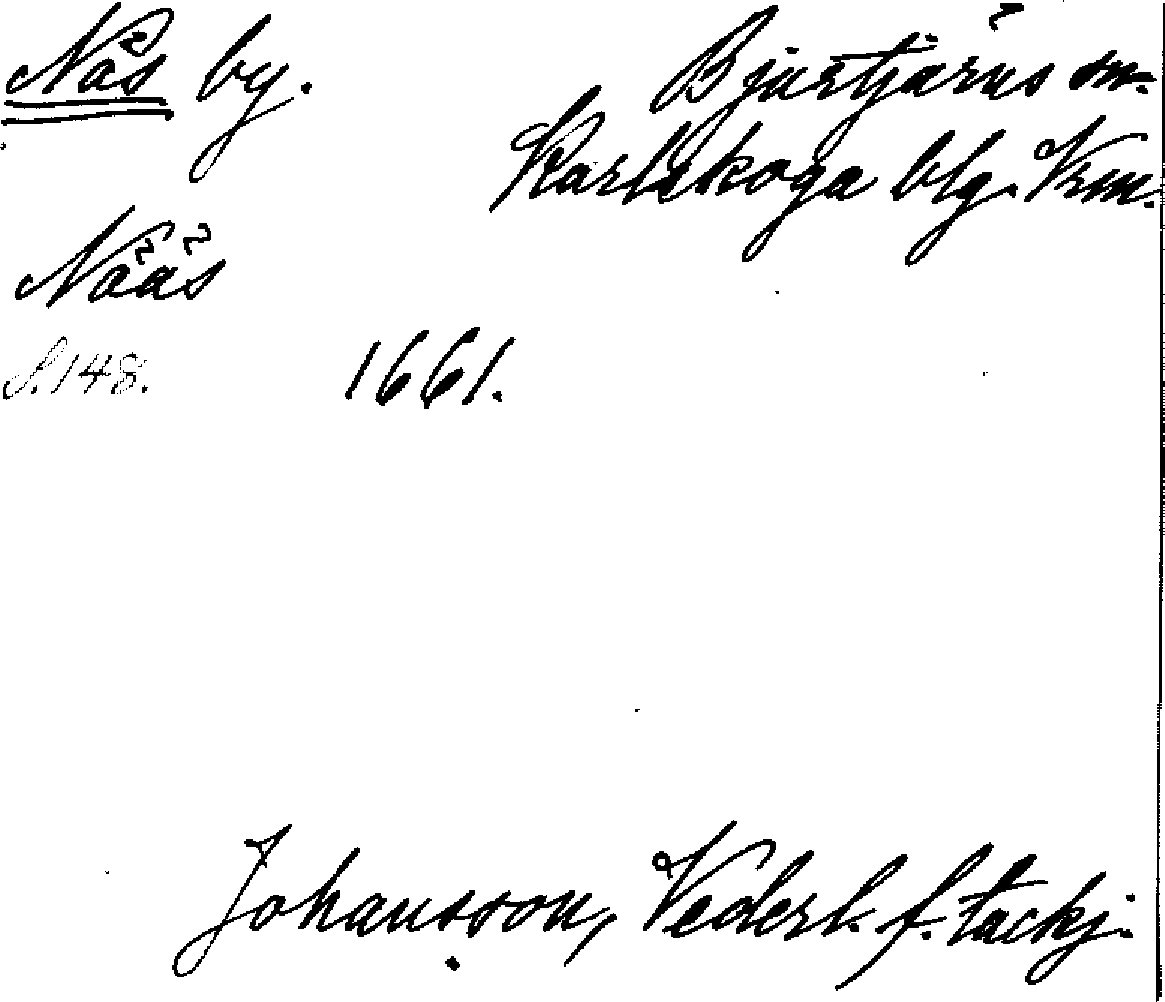 Näs by. Bjurtjärns sn.
Karlskoga blg. Vrm.
Nääs
S. 148. 1661.
Johansson, Vederl. f. tackj.